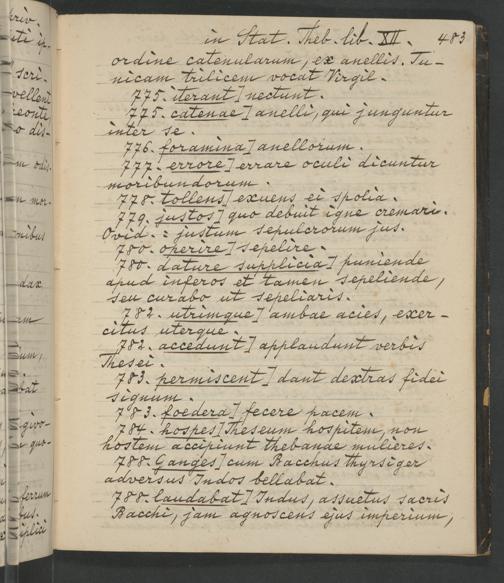 in Stat. Theb. lib. XII. 483
ordine catenularum, ex anellis. Tu-
nicam trilicem vocat Virgil.
775. iterant] nectunt.
775. catenae] anelli, qui junguntur
inter se.
776. foramina] anellorum.
777. errore] errare oculi dicuntur
moribundorum.
778. tollens] exuens ei spolia.
779. justos] quo debuit igne cremari.
Ovid. : justum sepulcrorum jus.
780. operire] sepelire.
780. dature supplicia] puniende
apud inferos et tamen sepeliende,
seu curabo ut sepeliaris.
782. utrimque] ambae acies, exer-
citus uterque.
782. accedunt] applaudunt verbis
Thesei.
783. permiscent] dant dextras fidei
signum.
783. foedera] fecere pacem.
784. hospes] Theseum hospitem, non
hostem accipiunt thebande mulieres.
788. Ganges] cum Bacchus thyrsiger
adversus Indos bellabat.
788. laudabat] Indus, assuetus sacris
Bacchi, jam agnoscens ejus imperium,